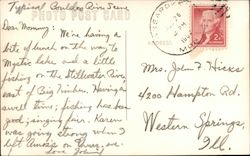 Typical Boulder River Scene
PHOTO POST CARD
Dear Mommy: We're having a
bite of lunch on the way to
Mystic lake and a little
fishing on the Stillwater River
east of Big Timber. Having a
swell time; fishing has been
good; singing fair. Karen
was going strong when I
left
Love
ADDRESS
2¢
Mrs. John F. Hicks
4200 Hampton Rd.
Western Springs,
Ill.